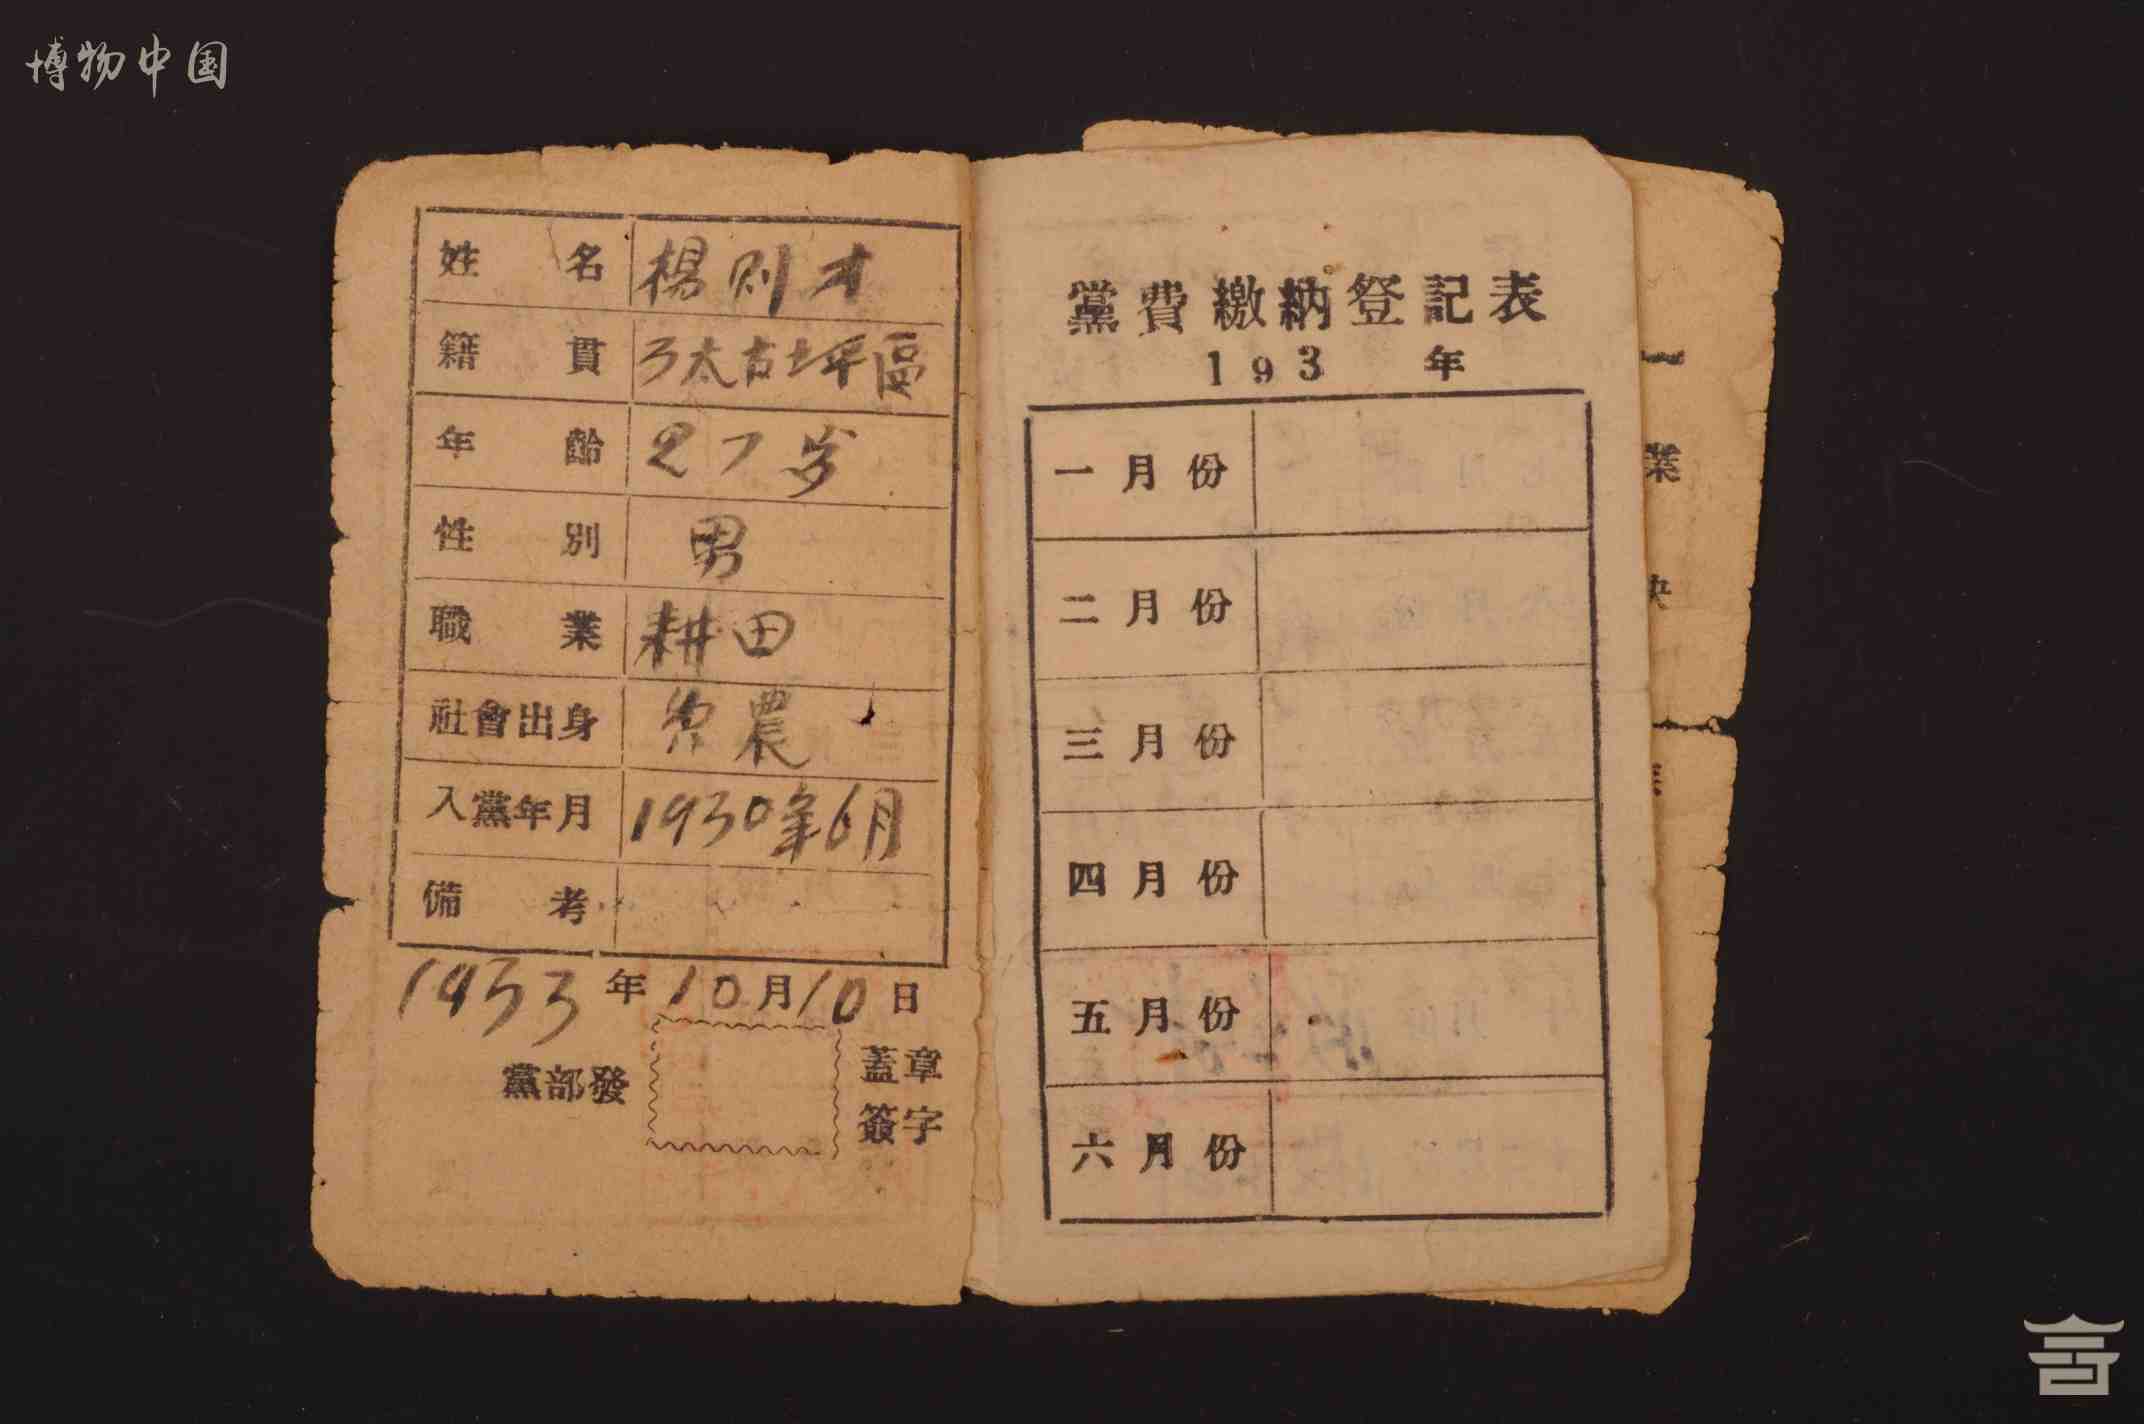 博物中国
姓名 楊则才
籍貫 太古坪區
年齡 27岁
性別 男
職業 耕田
社會出身 農
入黨年月 1930年6月
備考
1933年10月10日
黨部發
蓋章
簽字
黨費繳納登記表
193 年
一月份
二月份
三月份
四月份
五月份
六月份
一
業
決